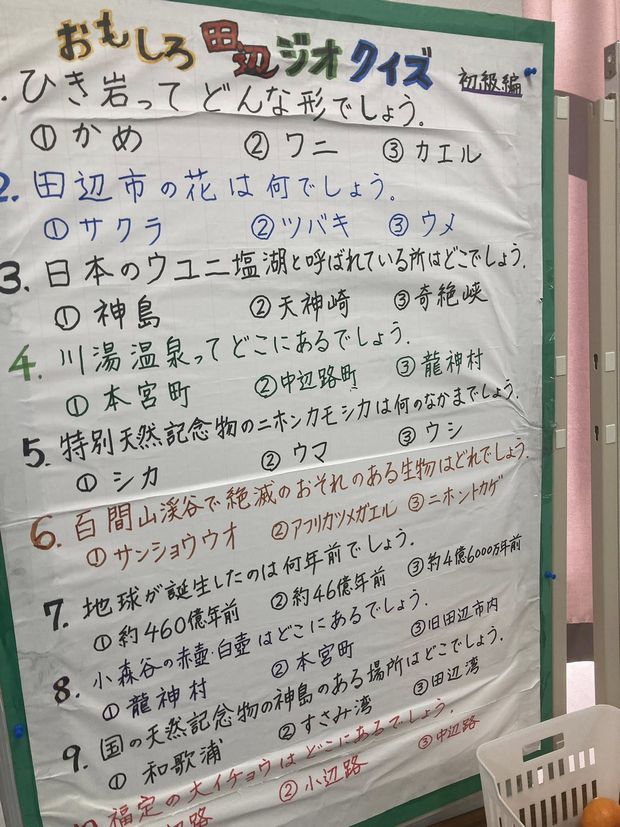 おもしろ田辺ジオクイズ 初級編
. ひき岩って どんな形でしょう。
① かめ ② ワニ ③ カエル
2. 田辺市の花は何でしょう。
① サクラ ② ツバキ ③ ウメ
3. 日本のウユニ塩湖と呼ばれている所はどこでしょう。
① 神島 ② 天神崎 ③ 奇絶峡
4. 川湯温泉って どこにあるでしょう。
① 本宮町 ② 中辺路町 ③ 龍神村
5. 特別天然記念物のニホンカモシカは何のなかまでしょう。
① シカ ② ウマ ③ ウシ
6. 百間山渓谷で絶滅のおそれのある生物はどれでしょう。
① サンショウウオ ② アフリカツメガエル ③ ニホントカゲ
7. 地球が誕生したのは何年前でしょう。
① 約460億年前 ② 約46億年前 ③ 約4億6000万年前
8. 小森谷の赤壺・白壺はどこにあるでしょう。
① 龍神村 ② 本宮町 ③ 旧田辺市内
9. 国の天然記念物の神島のある場所はどこでしょう。
① 和歌浦 ② すさみ湾 ③ 田辺湾
福定の大イチョウはどこにあるでしょう。
辺路 ② 小辺路 ③ 中辺路